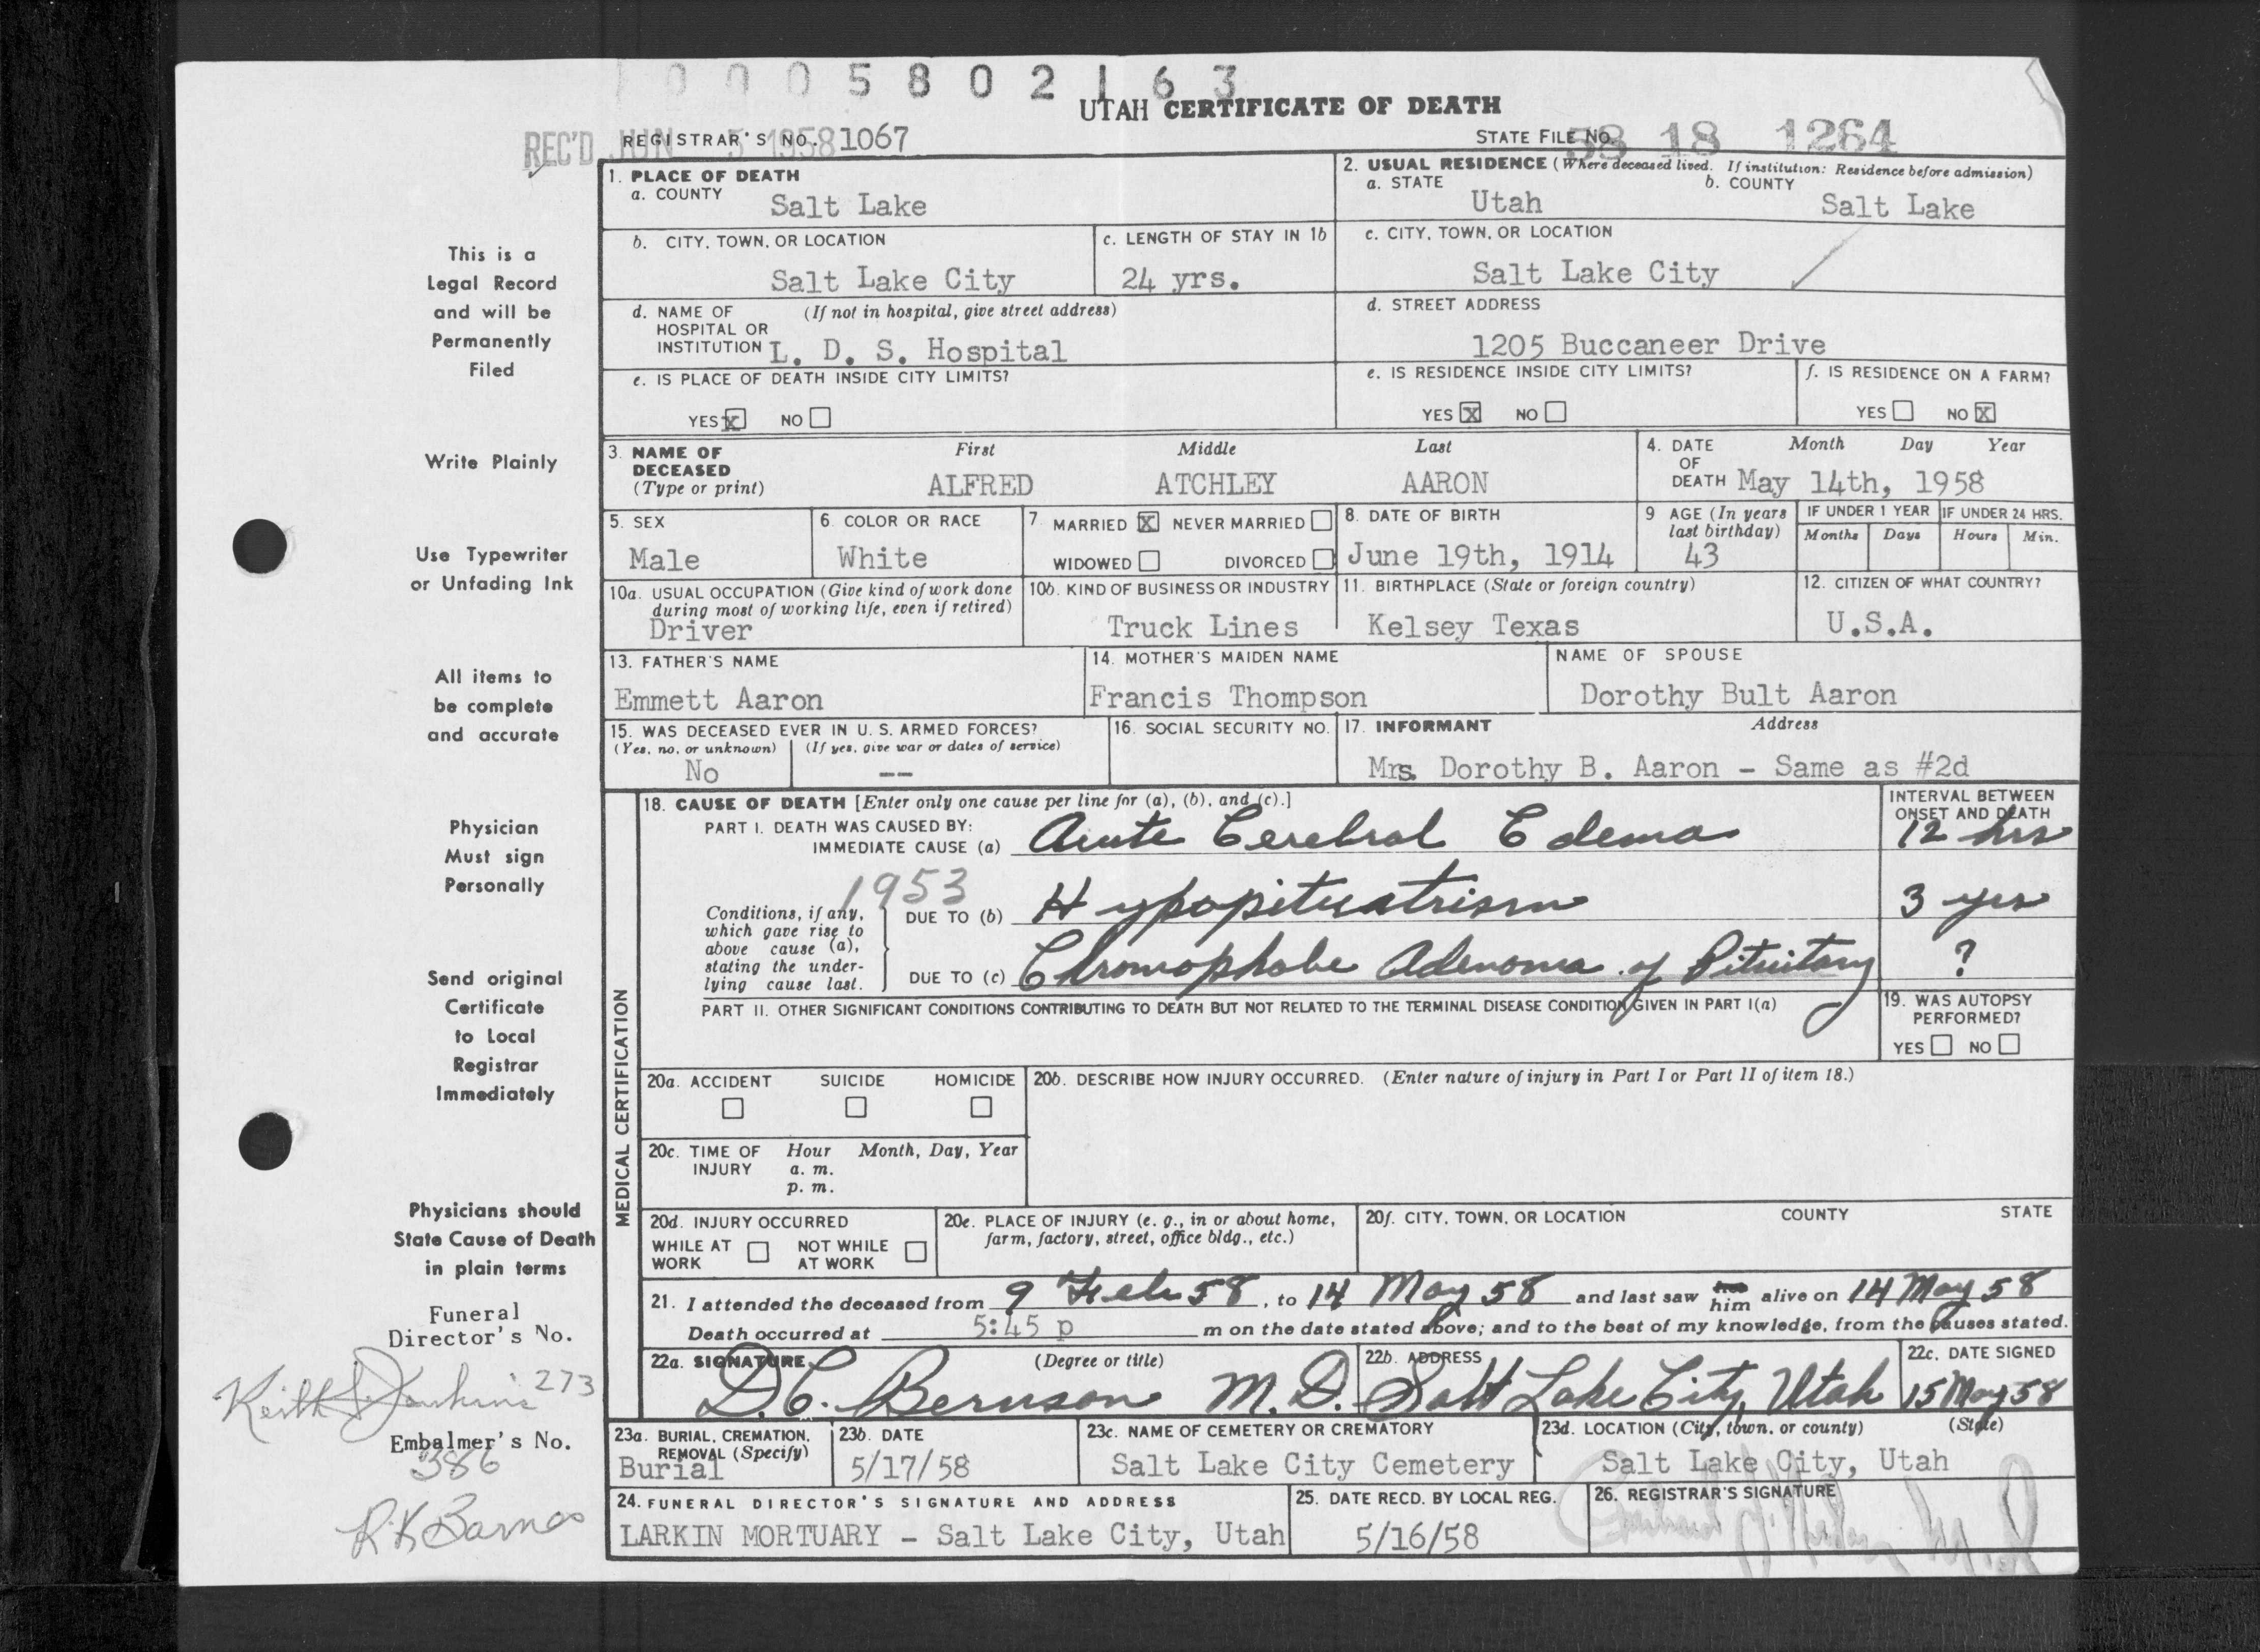 0005802163
UTAH CERTIFICATE OF DEATH
REC'D JUN 5 1958
REGISTRAR'S NO. 1067
STATE FILE NO. 58 18 1264
1. PLACE OF DEATH
a. COUNTY
Salt Lake
2. USUAL RESIDENCE (Where deceased lived. If institution: Residence before admission)
a. STATE
Utah
b. COUNTY
Salt Lake
b. CITY, TOWN, OR LOCATION
Salt Lake City
c. LENGTH OF STAY IN 1b
24 yrs.
c. CITY, TOWN, OR LOCATION
Salt Lake City
d. NAME OF (If not in hospital, give street address)
HOSPITAL OR
INSTITUTION L. D. S. Hospital
d. STREET ADDRESS
1205 Buccaneer Drive
e. IS PLACE OF DEATH INSIDE CITY LIMITS?
YES X NO
e. IS RESIDENCE INSIDE CITY LIMITS?
YES X NO
f. IS RESIDENCE ON A FARM?
YES NO X
3. NAME OF
DECEASED
(Type or print)
First Middle Last
ALFRED ATCHLEY AARON
4. DATE Month Day Year
OF
DEATH May 14th, 1958
5. SEX
Male
6. COLOR OR RACE
White
7. MARRIED X NEVER MARRIED
WIDOWED DIVORCED
8. DATE OF BIRTH
June 19th, 1914
9 AGE (In years
last birthday)
43
IF UNDER 1 YEAR
Months Days
IF UNDER 24 HRS.
Hours Min.
10a. USUAL OCCUPATION (Give kind of work done
during most of working life, even if retired)
Driver
10b. KIND OF BUSINESS OR INDUSTRY
Truck Lines
11. BIRTHPLACE (State or foreign country)
Kelsey Texas
12. CITIZEN OF WHAT COUNTRY?
U.S.A.
13. FATHER'S NAME
Emmett Aaron
14. MOTHER'S MAIDEN NAME
Francis Thompson
NAME OF SPOUSE
Dorothy Bult Aaron
15. WAS DECEASED EVER IN U. S. ARMED FORCES?
(Yes, no, or unknown) (If yes, give war or dates of service)
No --
16. SOCIAL SECURITY NO.
17. INFORMANT Address
Mrs. Dorothy B. Aaron - Same as #2d
MEDICAL CERTIFICATION
18. CAUSE OF DEATH [Enter only one cause per line for (a), (b), and (c).]
INTERVAL BETWEEN
ONSET AND DEATH
PART I. DEATH WAS CAUSED BY:
IMMEDIATE CAUSE (a) Acute Cerebral Edema 12 hrs
1953
Conditions, if any,
which gave rise to
above cause (a),
stating the under-
lying cause last.
DUE TO (b) Hypopituatrism 3 yrs
DUE TO (c) Chromophobe Adenoma of Pituitary ?
PART II. OTHER SIGNIFICANT CONDITIONS CONTRIBUTING TO DEATH BUT NOT RELATED TO THE TERMINAL DISEASE CONDITION GIVEN IN PART I(a)
19. WAS AUTOPSY
PERFORMED?
YES NO
20a. ACCIDENT SUICIDE HOMICIDE
20b. DESCRIBE HOW INJURY OCCURRED. (Enter nature of injury in Part I or Part II of item 18.)
20c. TIME OF Hour Month, Day, Year
INJURY a. m.
p. m.
20d. INJURY OCCURRED
WHILE AT NOT WHILE
WORK AT WORK
20e. PLACE OF INJURY (e. g., in or about home,
farm, factory, street, office bldg., etc.)
20f. CITY, TOWN, OR LOCATION COUNTY STATE
21. I attended the deceased from 9 Feb 58, to 14 May 58 and last saw him alive on 14 May 58
Death occurred at 5:45 p m on the date stated above; and to the best of my knowledge, from the causes stated.
22a. SIGNATURE (Degree or title)
D. C. Bernson M.D.
22b. ADDRESS
Salt Lake City, Utah
22c. DATE SIGNED
15 May 58
23a. BURIAL, CREMATION,
REMOVAL (Specify)
Burial
23b. DATE
5/17/58
23c. NAME OF CEMETERY OR CREMATORY
Salt Lake City Cemetery
23d. LOCATION (City, town, or county) (State)
Salt Lake City, Utah
24. FUNERAL DIRECTOR'S SIGNATURE AND ADDRESS
LARKIN MORTUARY - Salt Lake City, Utah
25. DATE RECD. BY LOCAL REG.
5/16/58
26. REGISTRAR'S SIGNATURE
This is a
Legal Record
and will be
Permanently
Filed
Write Plainly
Use Typewriter
or Unfading Ink
All items to
be complete
and accurate
Physician
Must sign
Personally
Send original
Certificate
to Local
Registrar
Immediately
Physicians should
State Cause of Death
in plain terms
Funeral
Director's No.
Keith 273
Embalmer's No.
386
R K Barnes